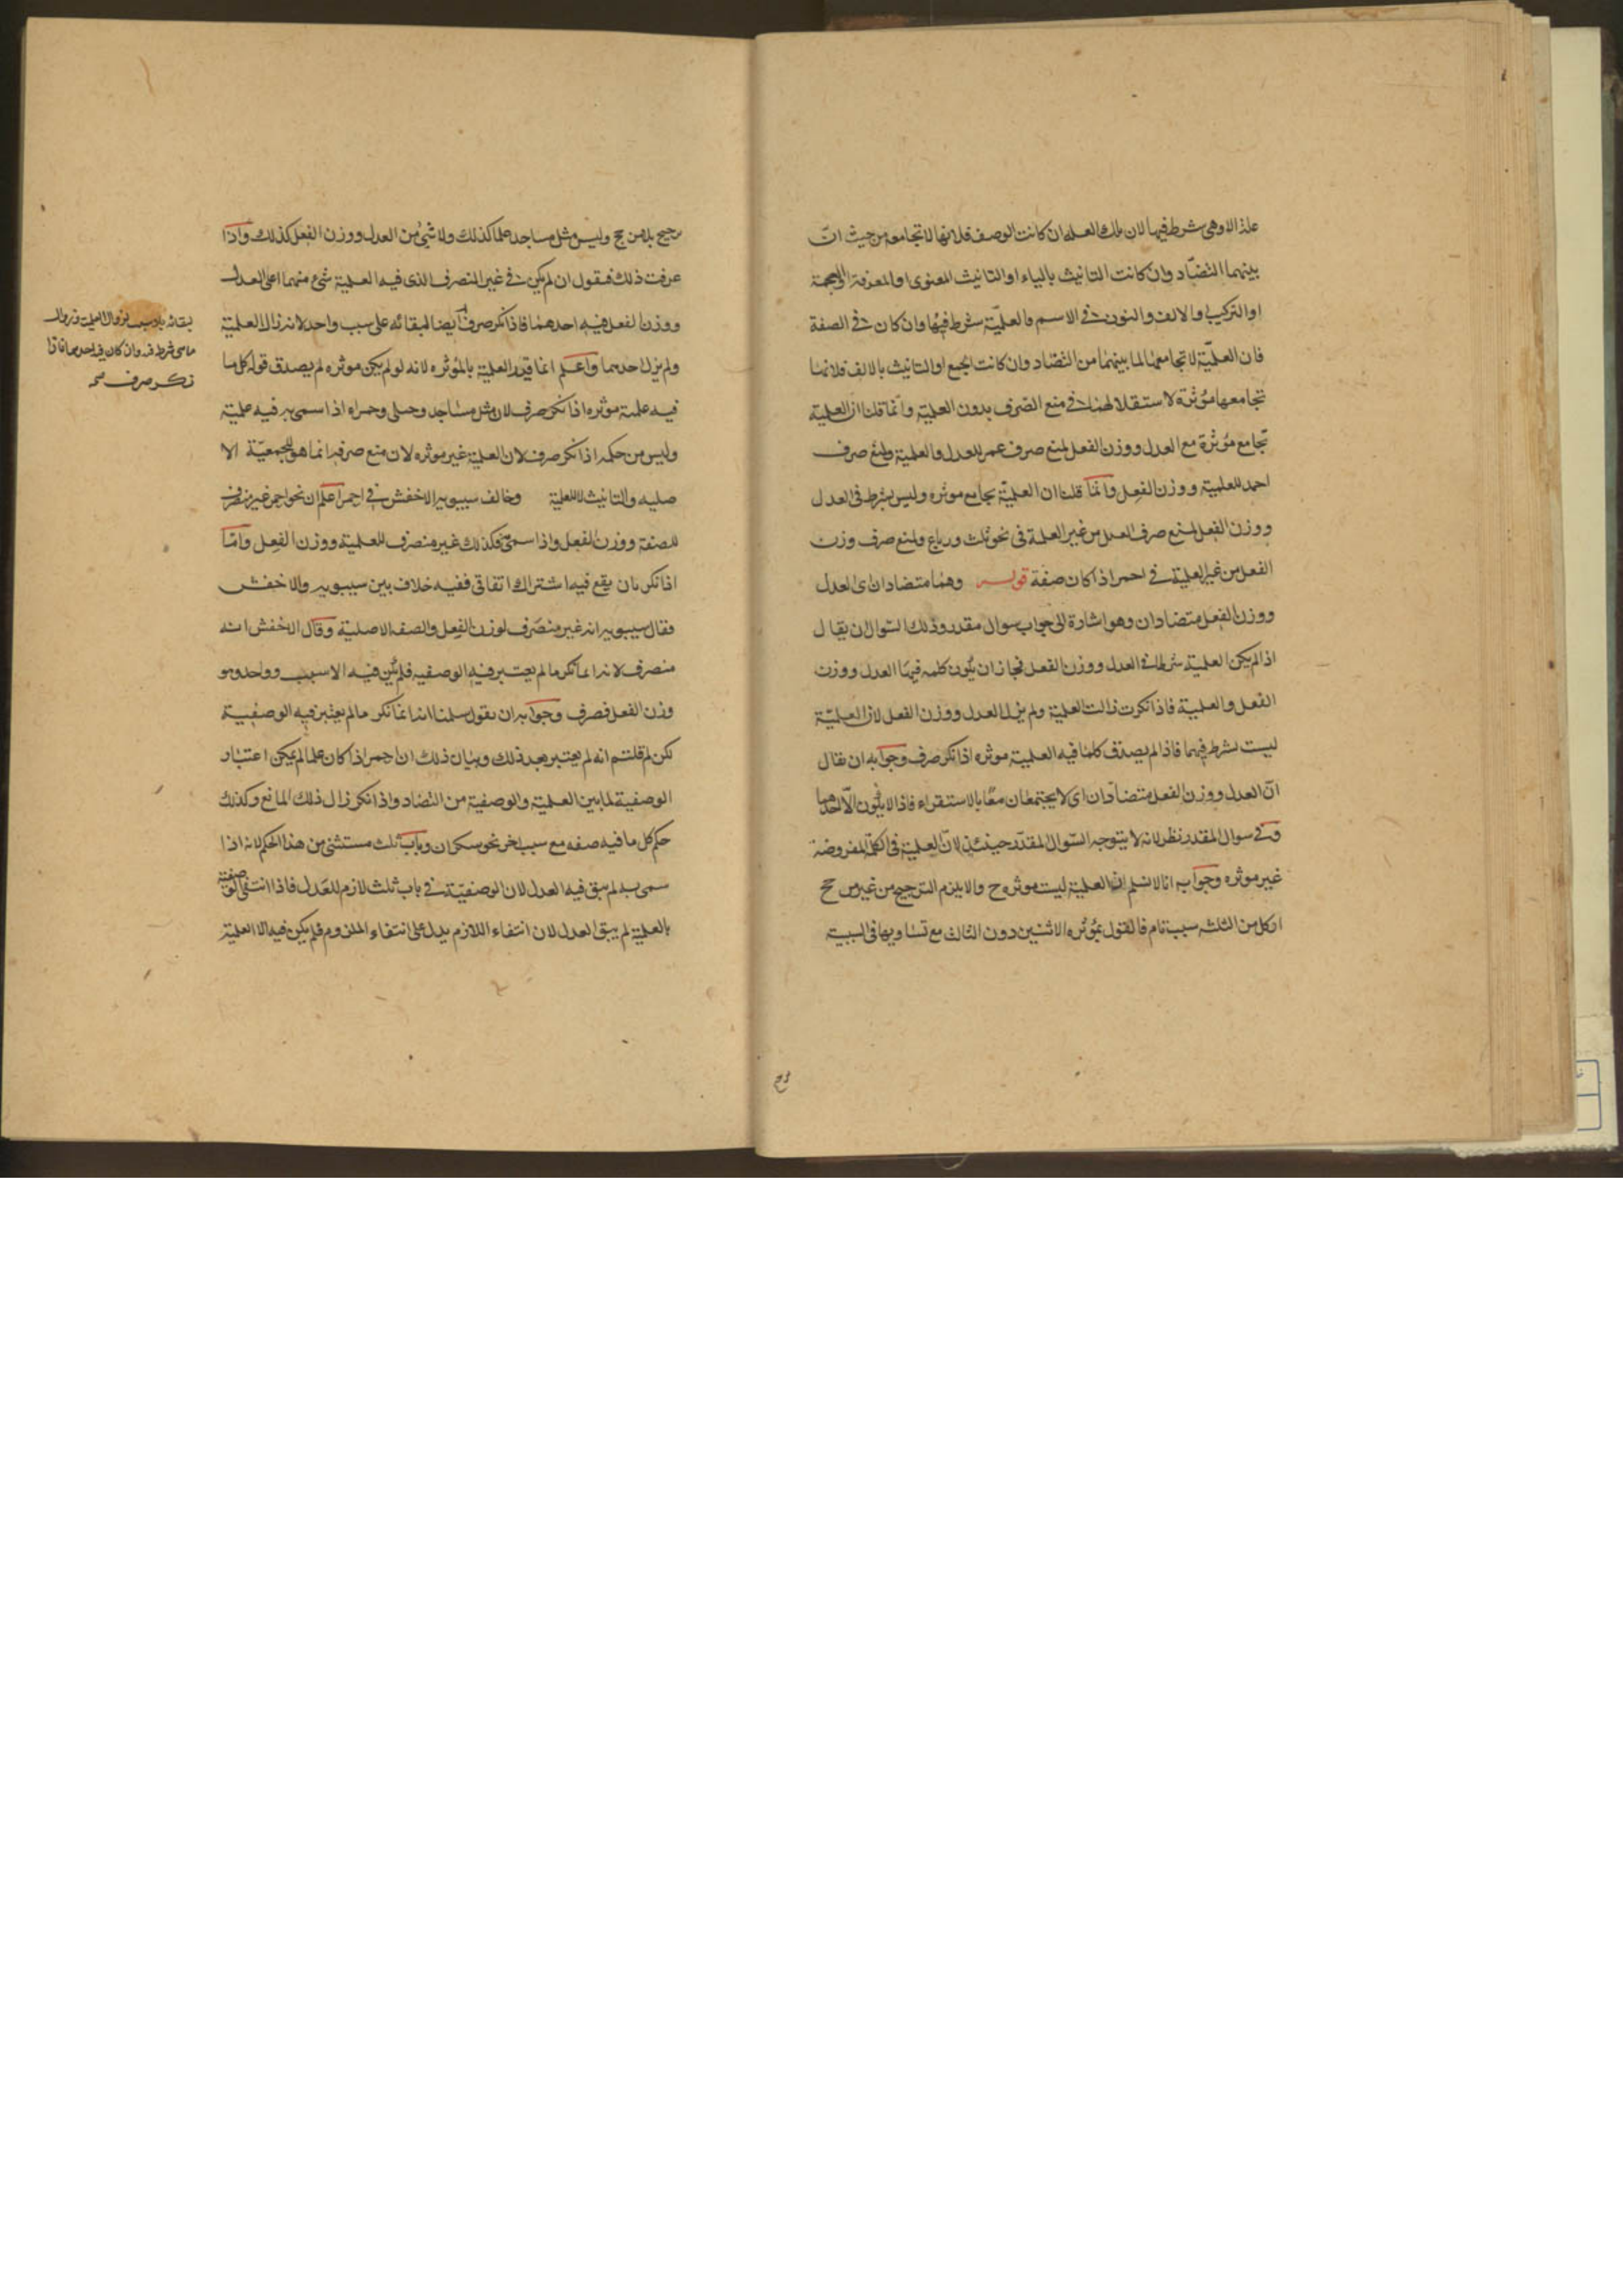 علة الا وهى شرط فيها لان تلك العلة ان كانت الوصف فلانها لا تجامعه من حيث ان
بينهما التضاد وان كانت التانيث بالياء او التانيث المعنوى او المعرفة او العجمة
او التركيب او الالف والنون فى الاسم فالعلميّة شرط فيها وان كان فى الصفة
فان العلميّة لا تجامعها لما بينهما من التضاد وان كانت الجمع او التانيث بالالف فلانها
تجامعها مؤثرة لاستقلالهما فى منع الصرف بدون العلمية وانما قلنا ان العلمية
تجامع مؤثرة مع العدل ووزن الفعل لمنع صرف عمر للعدل والعلمية ولمنع صرف
احمد للعلمية ووزن الفعل وانما قلنا ان العلميّة تجامع موثره وليس بشرط فى العدل
ووزن الفعل لمنع صرف العدل من غير العلمة فى نحو ثلث ورباع ولمنع صرف وزن
الفعل من غير العلمية فى احمر اذا كان صفة قوله وهما متضادان اى العدل
ووزن الفعل متضادان وهو اشارة الى جواب سوال مقدر وذلك السّوال ان يقال
اذا لم يكن العلمية شرطا فى العدل ووزن الفعل فجاز ان يكون كلمه فيها العدل ووزن
الفعل والعلمية فاذا نكرت زالت العلمية ولم يزل العدل ووزن الفعل لان العلميّة
ليست بشرط فيهما فاذا لم يصدق كلما فيه العلمية موثره اذا نكر صرف وجوابه ان يقال
انّ العدل ووزن الفعل متضادّان اى لا يجتمعان معًا بالاستقراء فاذا لا يكون الّا احدهما
وفى سوال المقدر نظر لانه لا يتوجه السّوال المقدّر حينئذٍ لانّ العلمية فى الكلمة المفروضة
غير موثره وجوابه انا لا نسلم ان العلمية ليست موثره ح والا يلزم الترجيح من غير مرجح
اذ كل من الثلثه سبب تام فالقول بمؤثره الاثنين دون الثالث مع تساويها فى السببية
ترجيح بلا مرجح وليس مثل مساجد علما كذلك ولا شئ من العدل ووزن الفعل كذلك واذا
عرفت ذلك فنقول ان لم يكن فى غير المنصرف الذى فيه العلمية شئ منهما اعنى العدل
ووزن الفعل فيه احدهما فاذا نكر صرف ايضا لبقائه على سبب واحد لانه زال العلميّة
ولم يزل احدهما واعلم انما قيد العلمية بالمؤثره لانه لو لم يكن موثره لم يصدق قوله كل ما
فيه علمية موثره اذا نكر صرف لان مثل مساجد وحبلى وحمراء اذا سمى به فيه علمية
وليس من حكمه اذا نكر صرف لان العلمية غير موثره لان منع صرفه انما هو للجمعيّة الا
صليه والتانيث لا للعلمية وخالف سيبويه الاخفش فى احمر اعلم ان نحو احمر غير منصرف
للصفة ووزن الفعل واذا سمى فكذلك غير منصرف للعلمية ووزن الفعل وامّا
اذا نكر بان يقع فيه اشتراك اتفاقى ففيه خلاف بين سيبويه والاخفش
فقال سيبويه انه غير منصرف لوزن الفعل والصفة الاصلية وقال الاخفش انه
منصرف لانه لما نكر ما لم يعتبر فيه الوصفيه فلم يكن فيه الا سبب وواحد وهو
وزن الفعل فصرف وجوابه ان نقول سلمنا انه لما نكر ما لم يعتبر فيه الوصفيّة
لكن لم قلتم انه لم يعتبر بعد ذلك وبيان ذلك ان احمر اذا كان علما لم يمكن اعتبار
الوصفية لما بين العلمية والوصفية من التضاد واذا نكر زال ذلك المانع وكذلك
حكم كل ما فيه صفه مع سبب اخر نحو سكران وباب ثلث مستثنى من هذا الحكم لانه اذا
سمى به لم يبق فيه العدل لان الوصفيّة فى باب ثلث لازم للعدل فاذا انتفى الوصفية
بالعلمية لم يبق العدل لان انتفاء اللازم يدل على انتفاء الملزوم فلم يكن فيه الا العلمية
بقائه بلا سبب لزوال العلمية وزوال
ما هى شرط فيه وان كان فيه احدهما فاذا
نكر صرف صح